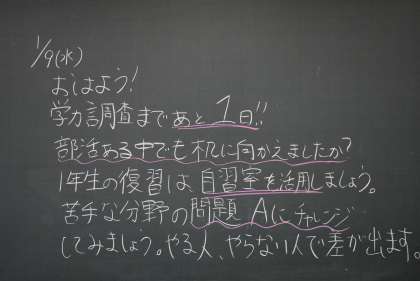 1/9(水)
おはよう!
学力調査まであと1日!!
部活ある中でも机に向かえましたか?
1年生の復習は自習室を活用しましょう。
苦手な分野の問題Aにチャレンジ
してみましょう。やる人、やらない人で差が出ます。